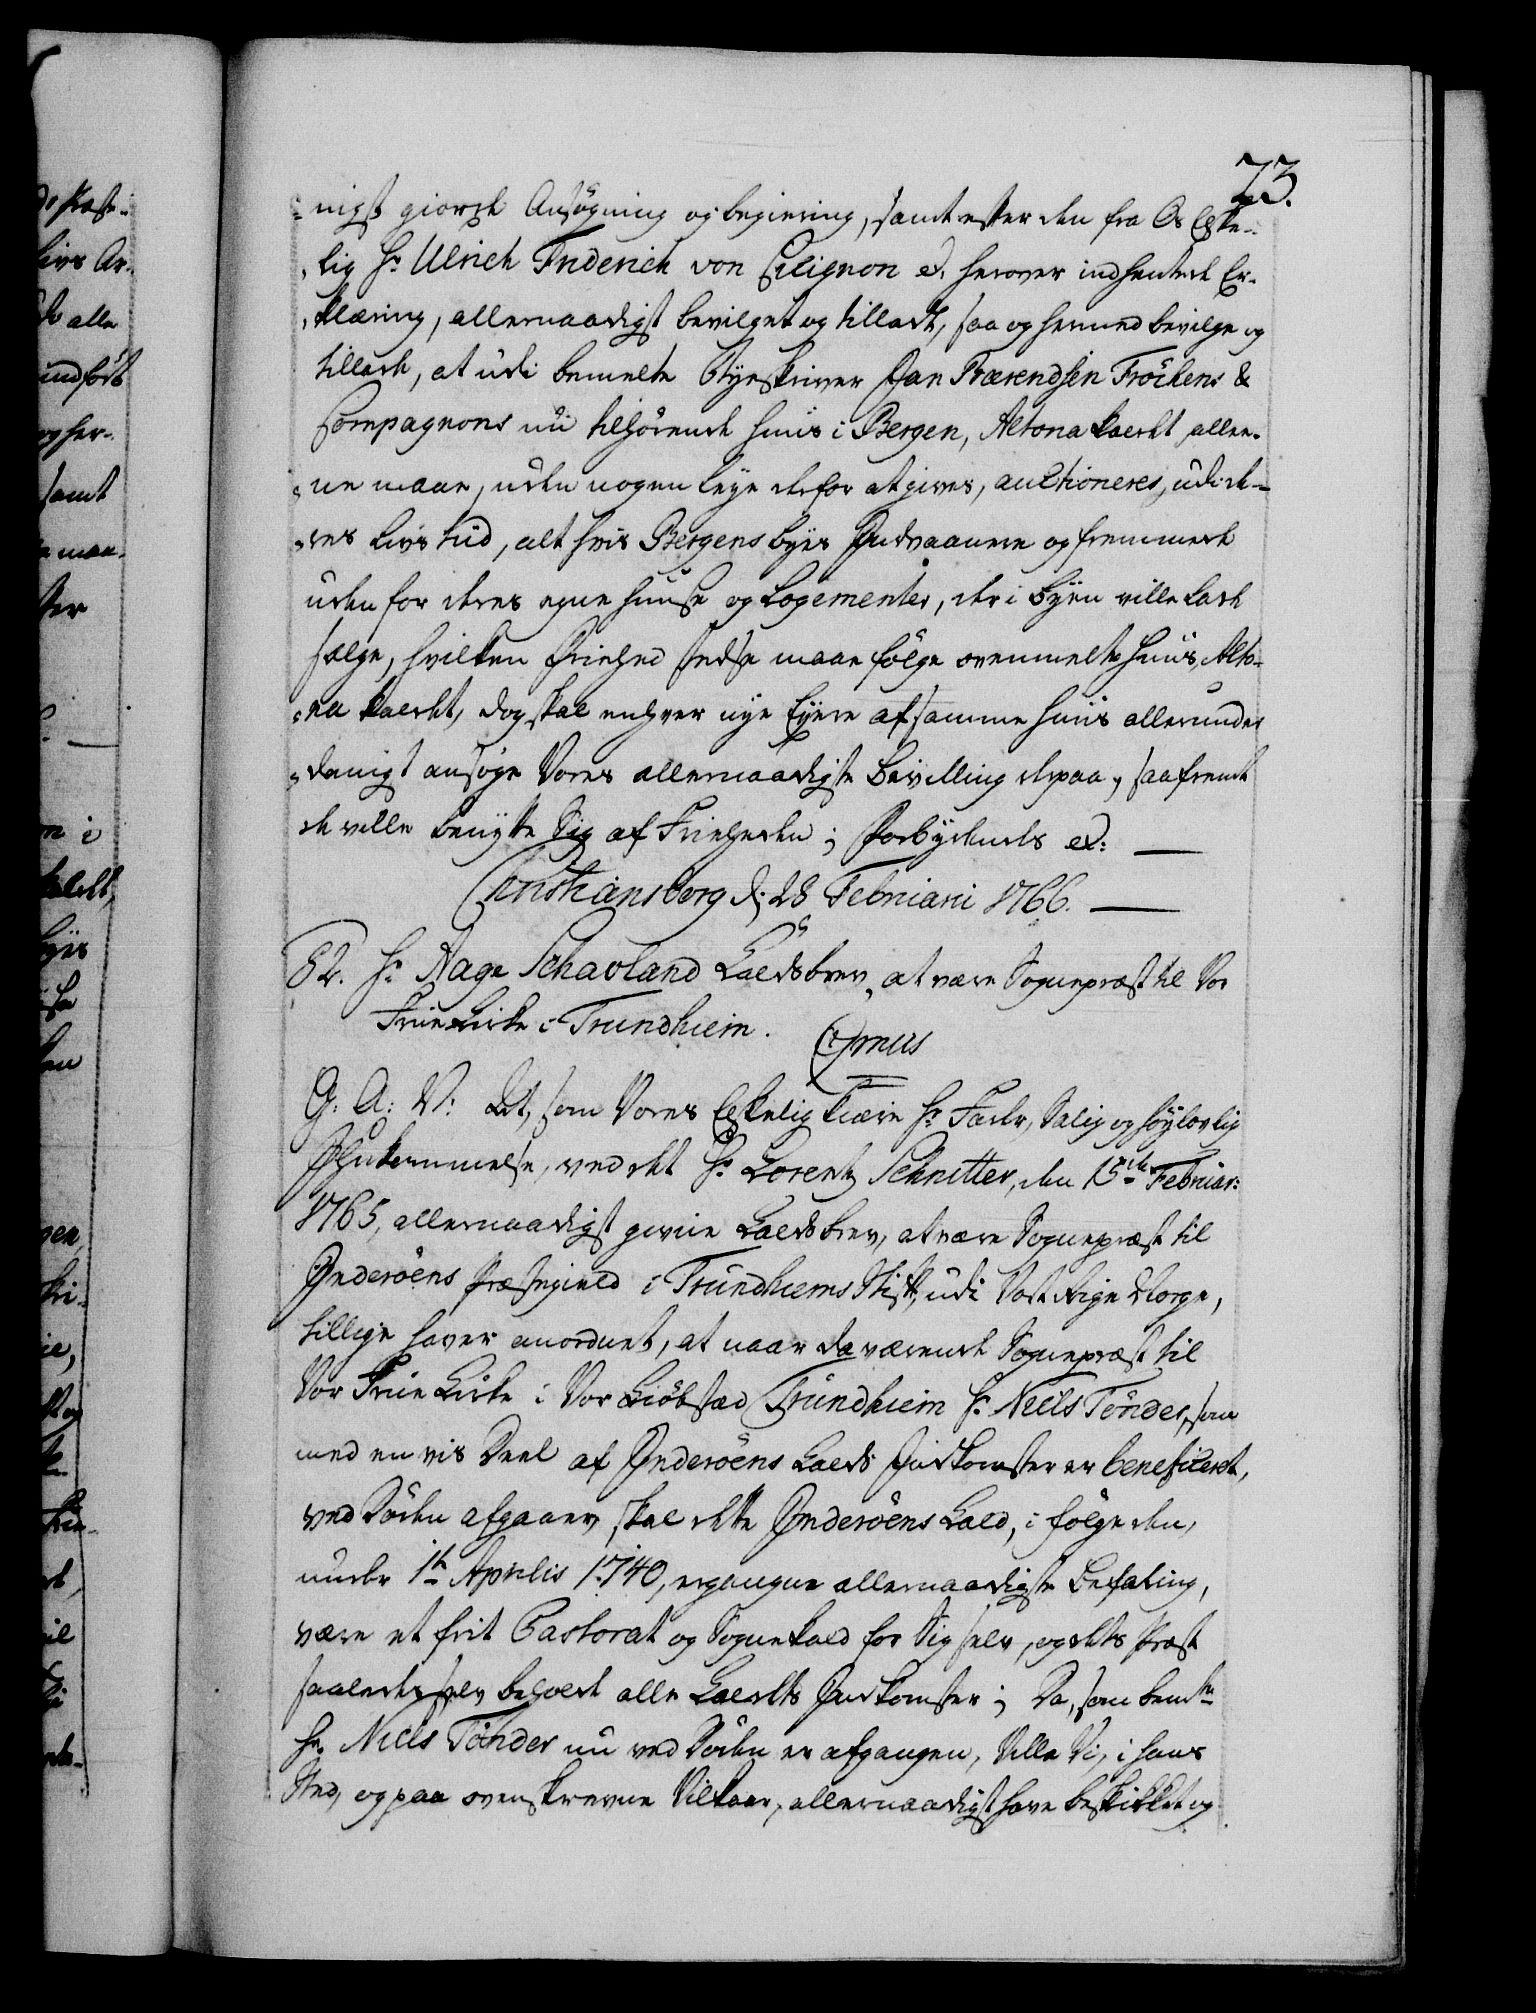 73.
-nigst giorde Ansögning og begiering, samt efter den fra Os Elske-
-lig Hr Ulrich Friderich von Cicignon &c. herover indhentede Er-
-klæring, allernaadigst bevilget og tilladt, saa og hermed bevilge og
tillade, at udi bemelte Byeskriver Jan Frærendsen Fröchens &
Compagnons nu tilhörende Huus i Bergen, Altona kaldet, alle-
-ne maae, uden nogen leye derfor at gives, auctioneres, udi de-
-res Livs tiid, alt hvis Bergens Byes Indvaanere og fremmede
uden for deres egne Huuse og Logementer, der i Byen ville lade
sælge, hvilken Friehed stedse maae fölge ovenmelte Huus, Alto-
-na kaldet, dog skal enhver nye Eyere af samme Huus allerunder-
-danigst ansöge Vores allernaadigste Bevilling derpaa, saafremt
de ville benytte Sig af Friheden; Forbydendes &c: —
Christiansborg d: 28 Februarii 1766. —
82. Hr Aage Schavland Kaldsbrev, at være Sognepræst til Vor
Frue Kirke i Trundhiem.
G: A: V: At, som Vores Elskelig kiære Hr Fader, Salig og Höylovlig
Ihukommelse, ved det Hr Lorentz Schnitter, den 15de Februar:
1765, allernaadigst givne Kaldsbrev, at være Sognepræst til
Inderöens Præstegield i Trundhiems Stift, udi Vort Rige Norge,
tillige haver anordnet, at naar daværende Sognepræst til
Vor Frue Kirke i Vor Kiöbstæd Trundhiem Hr Niels Tönder, som
med en vis Deel af Inderöens Kalds Indkomster er beneficeret,
ved Döden afgaaer, skal dette Inderöens Kald, i fölge den,
under 1te Aprilis 1740, ergangne allernaadigste Befaling,
være et frit Pastorat og Sognekald for Sig selv, og dets Præst
saaledes selv beholde alle Kaldets Indkomster; Da, som bemte
Hr. Niels Tönder nu ved Döden er afgangen, Ville Vi, i hans
Sted, og paa ovenskrevne Vilkaar, allernaadigst have beskikket og